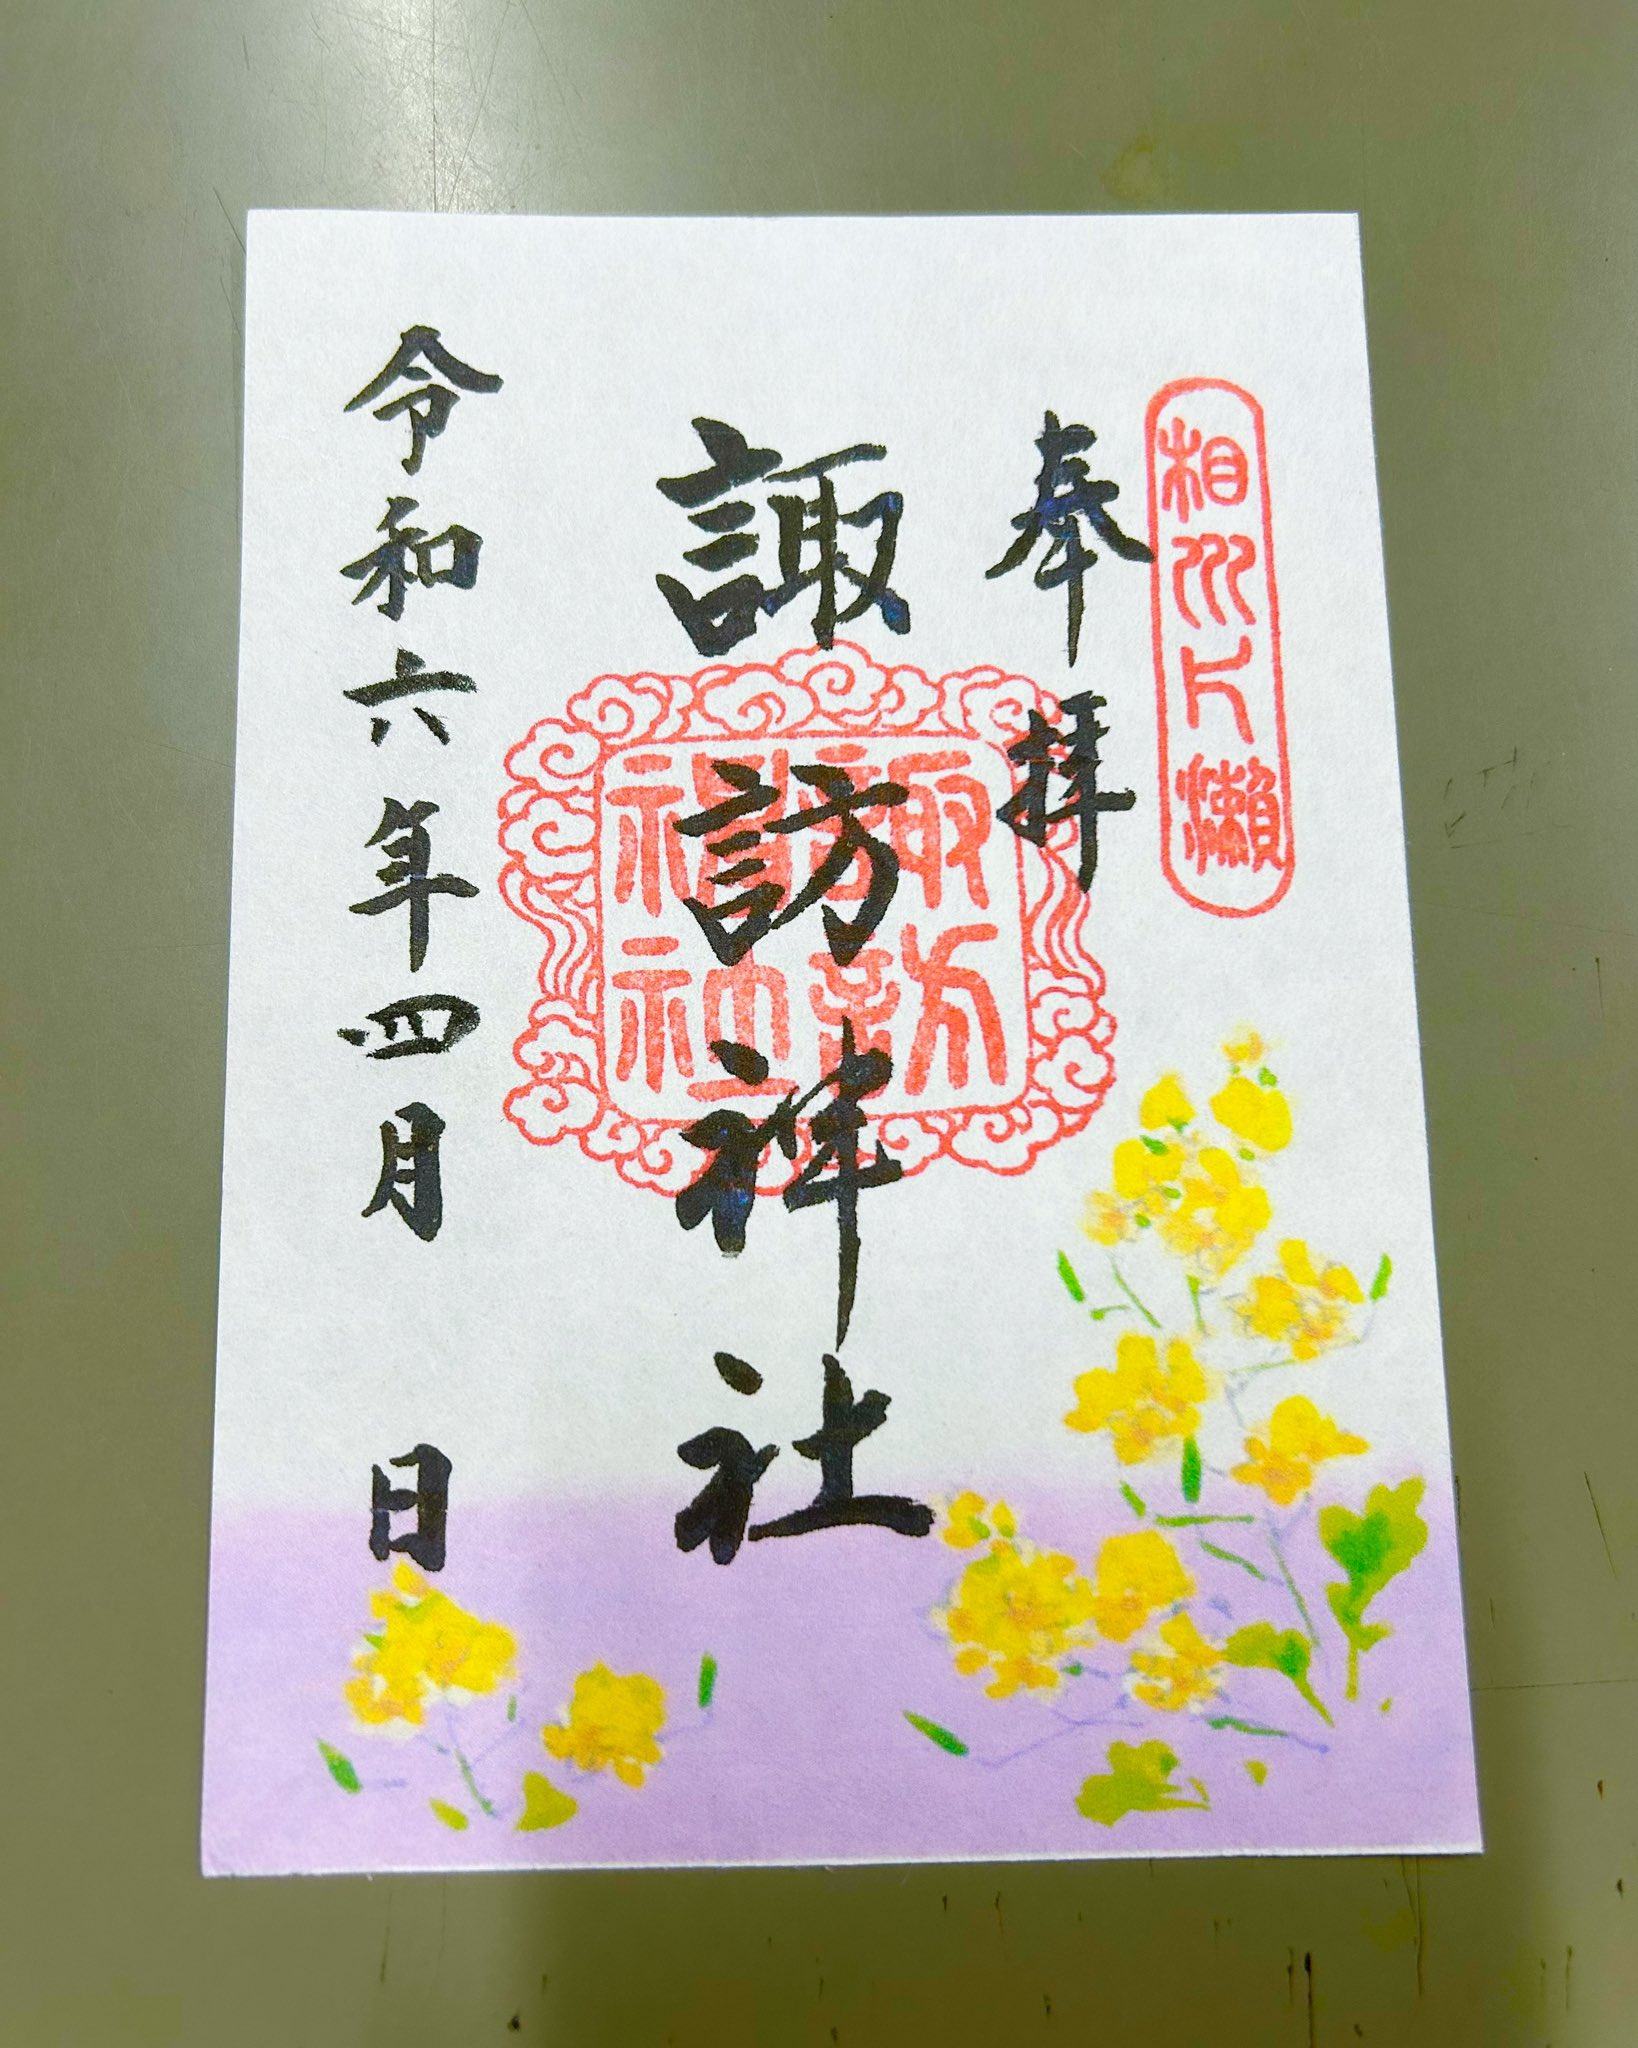 相州片瀬
奉拝
諏訪神社
諏訪
神社
令和六年四月 日